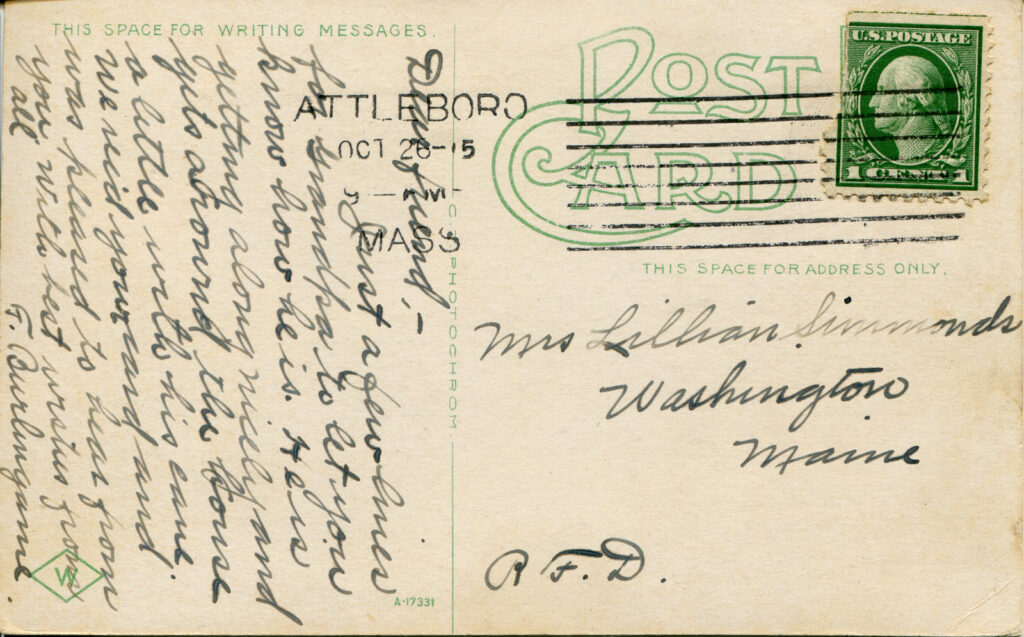 THIS SPACE FOR WRITING MESSAGES.
Dear friend,—
Just a few lines
for grandpa to let you
know how he is. He is
getting along nicely and
gets around the house
a little with his cane.
We rec'd your card and
was pleased to hear from
you with best wishes from
all F. Burlingame.
W
A-17331
PHOTOCHROM
ATTLEBORO
OCT 26-15
MASS
POST
CARD
U.S. POSTAGE
1 CENT 1
THIS SPACE FOR ADDRESS ONLY.
Mrs Lillian Simmonds
Washington
Maine
R. F. D.